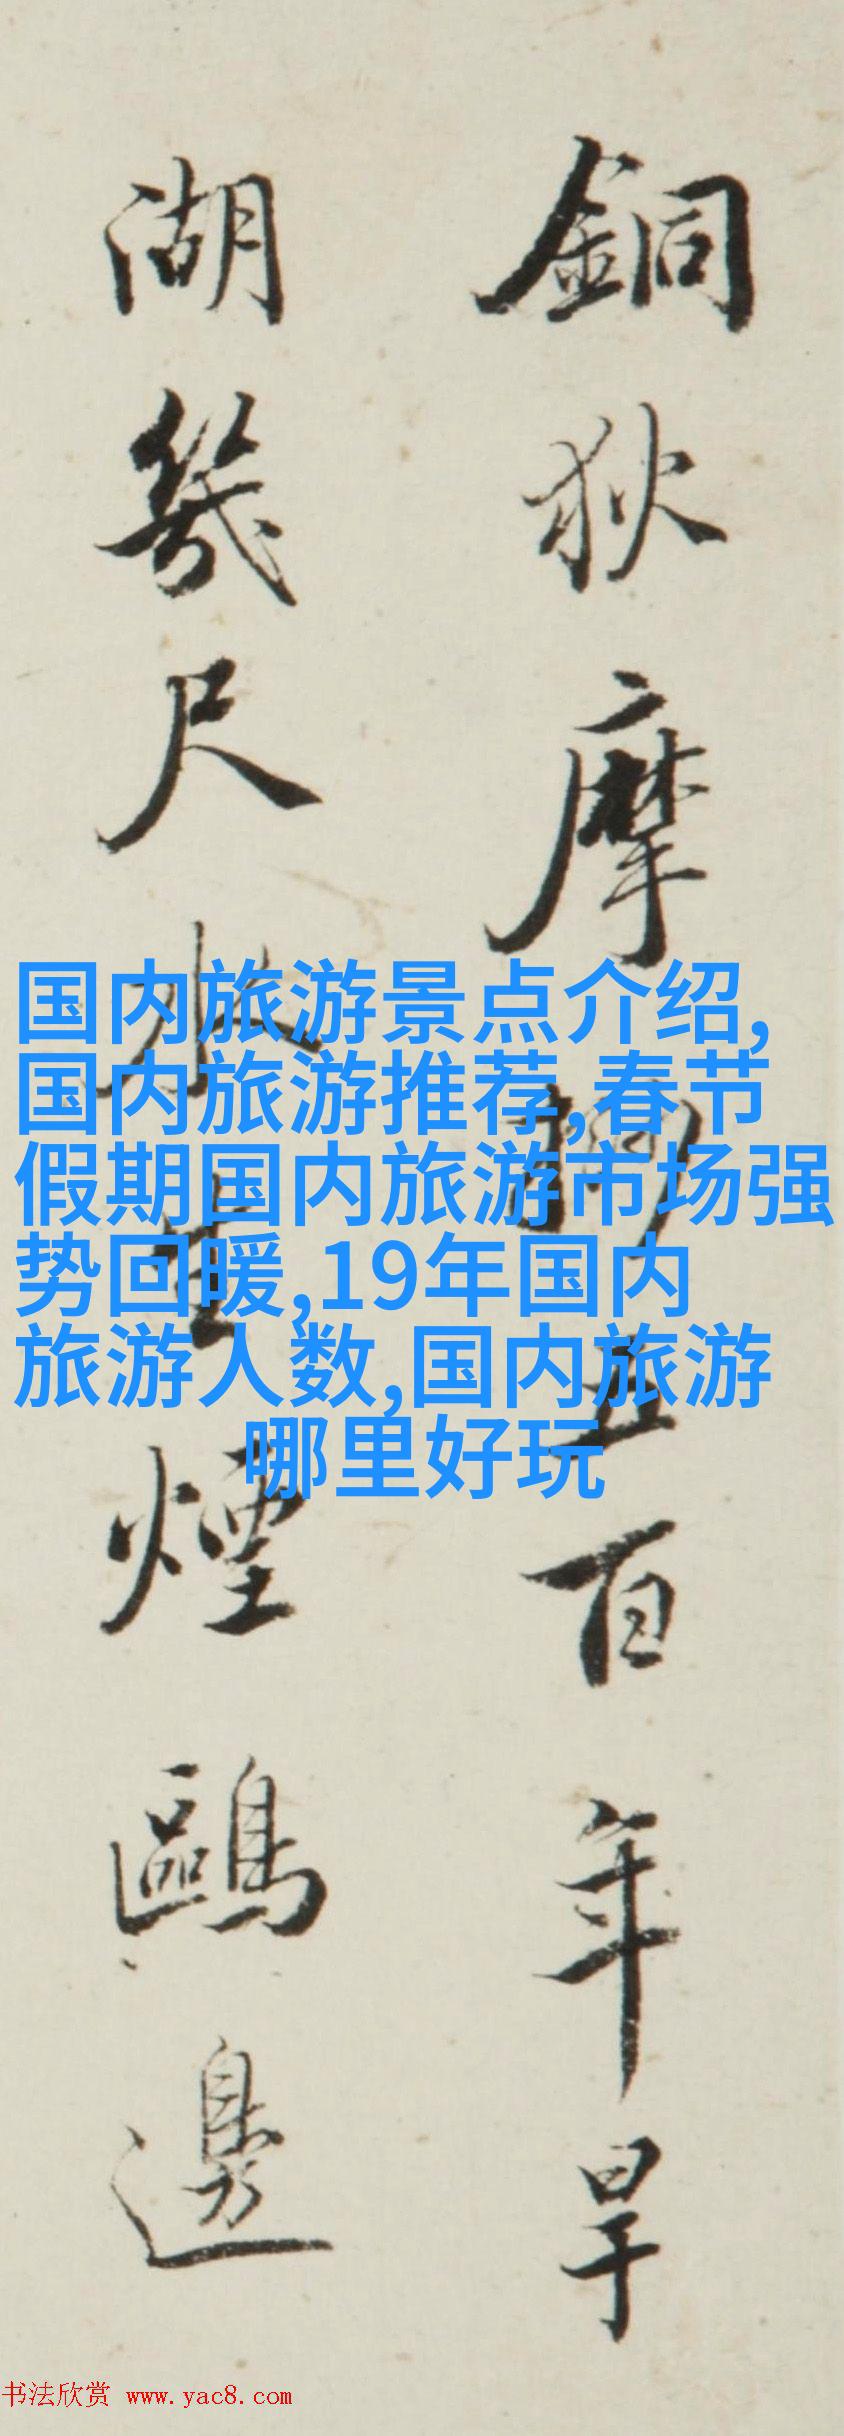 銅狄摩挲五百年旱
湖幾尺水生煙鷗邊
国内旅游景点介绍,
国内旅游推荐,春节
假期国内旅游市场强
势回暖,19年国内
旅游人数,国内旅游
哪里好玩
书法欣赏 www.yac8.com